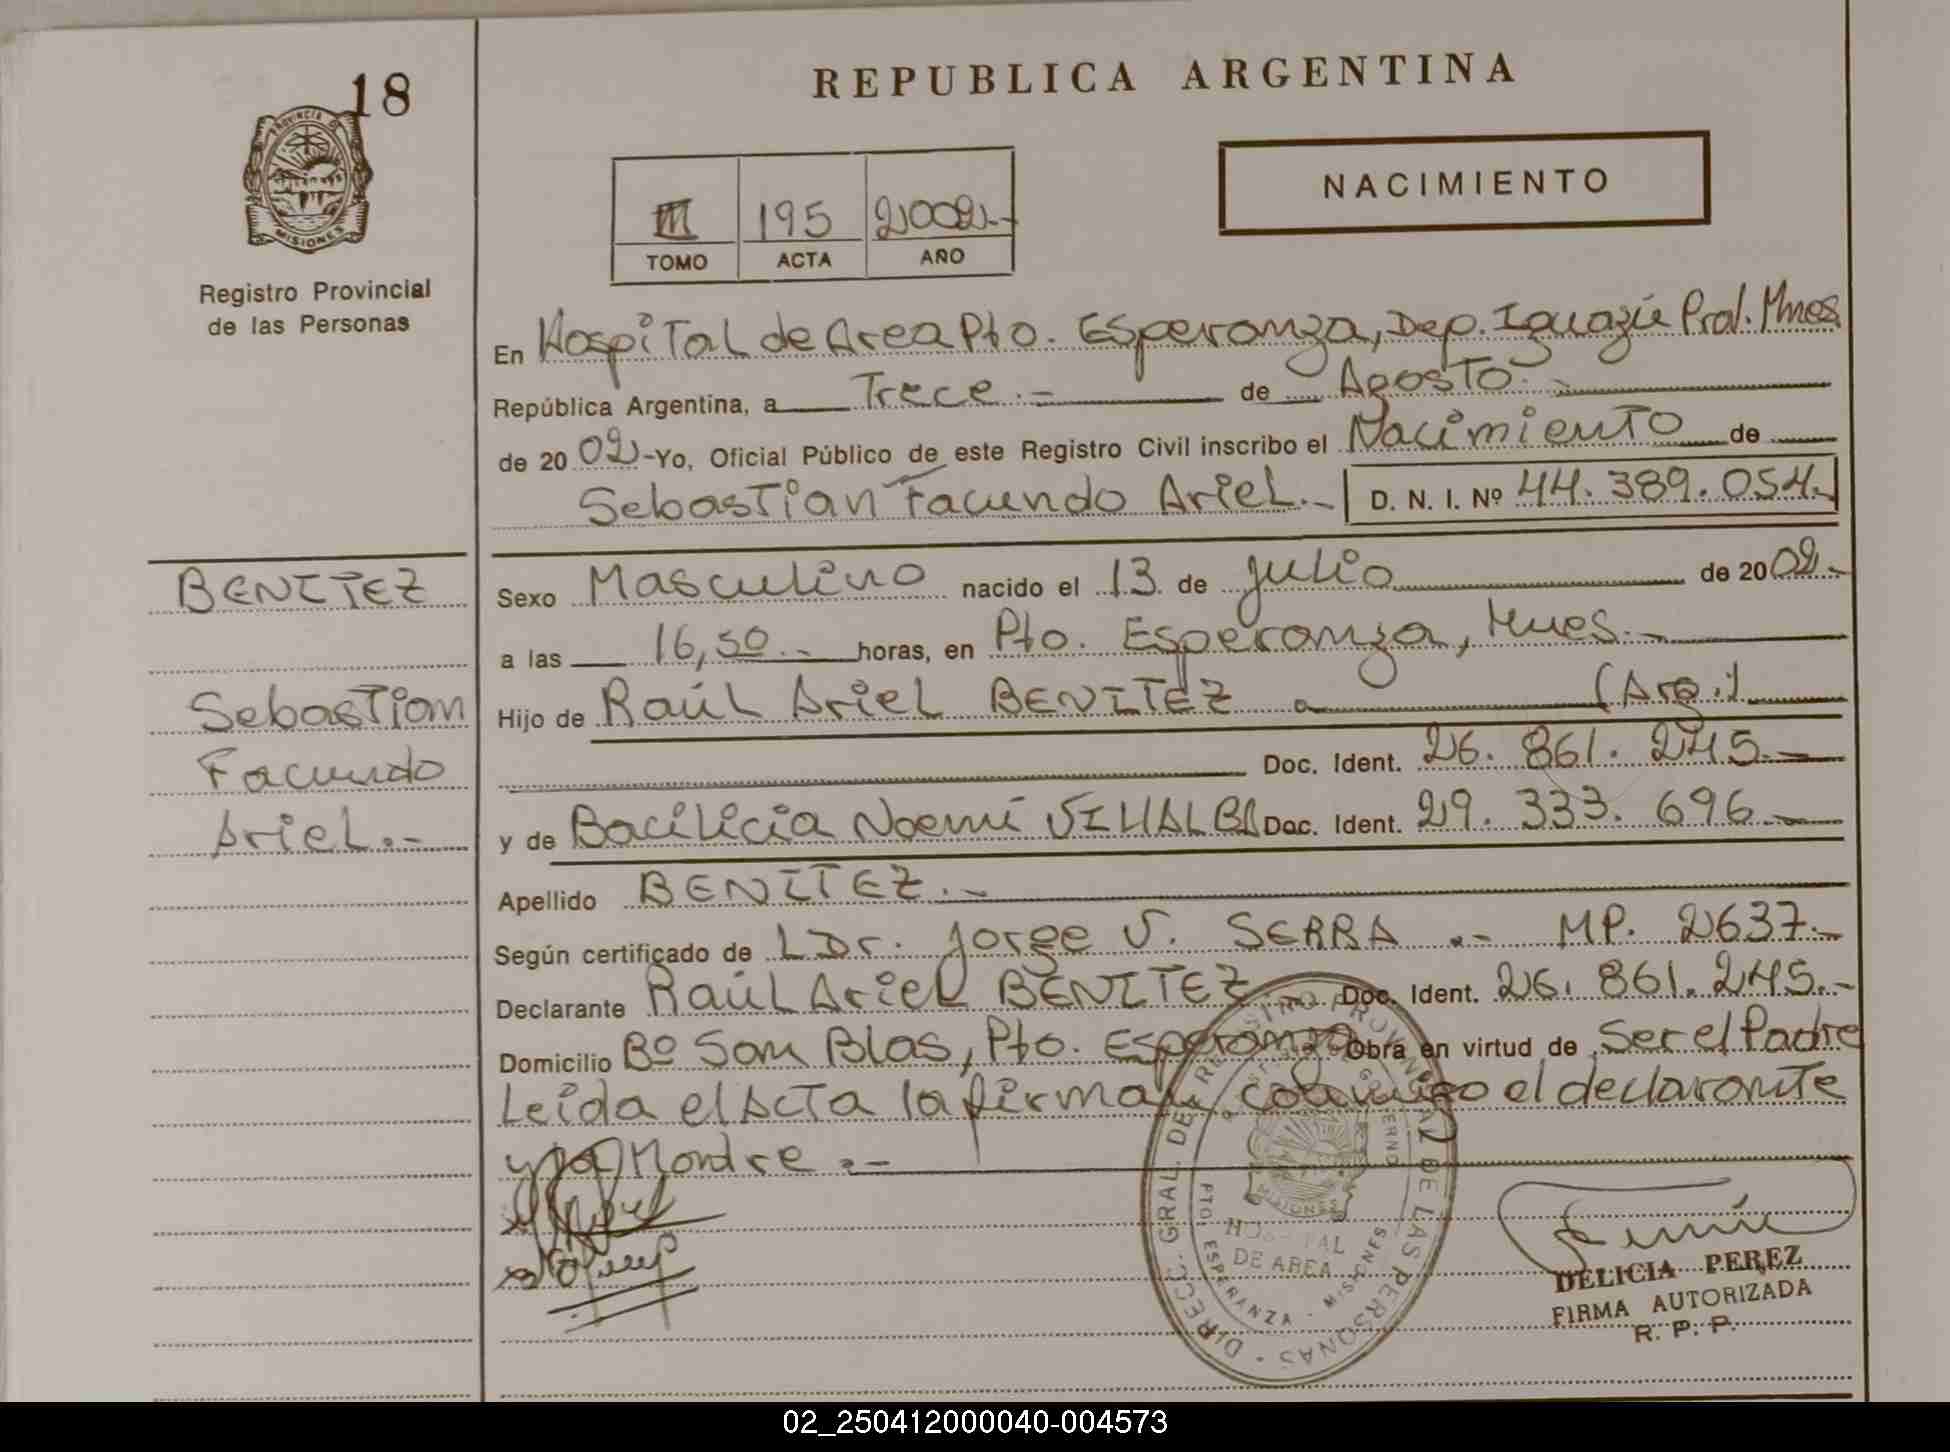 18
PROVINCIA DE
MISIONES
Registro Provincial
de las Personas
REPUBLICA ARGENTINA
NACIMIENTO
III 195 2002.-
TOMO ACTA AÑO
En Hospital de Area Pto. Esperanza, Dep. Iguazú Pral. Mnes
República Argentina, a Trece.- de Agosto.-
de 2002-Yo, Oficial Público de este Registro Civil inscribo el Nacimiento de
Sebastian Facundo Ariel.- D. N. I. Nº 44.389.054.-
BENITEZ
Sebastian
Facundo
Ariel.-
Sexo Masculino nacido el 13 de julio de 2002.-
a las 16,50.- horas, en Pto. Esperanza, Mnes.-
Hijo de Raúl Ariel BENITEZ (Arg.)
Doc. Ident. 26.861.245.-
y de Bacilicia Noemí VILLALBA Doc. Ident. 29.333.696.-
Apellido BENITEZ.-
Según certificado de LDr. Jorge V. SERRA.- MP. 2637.-
Declarante Raúl Ariel BENITEZ Doc. Ident. 26.861.245.-
Domicilio Bº San Blas, Pto. Esperanza Obra en virtud de Ser el Padre
Leida el Acta la firman conmigo el declarante
y la Madre.-
DIRECC. GRAL. DEL REGISTRO PROVINCIAL DE LAS PERSONAS
HOSPITAL
DE AREA
PTO. ESPERANZA - MISIONES
MISIONES
DELICIA PEREZ
FIRMA AUTORIZADA
R. P. P.
02_250412000040-004573